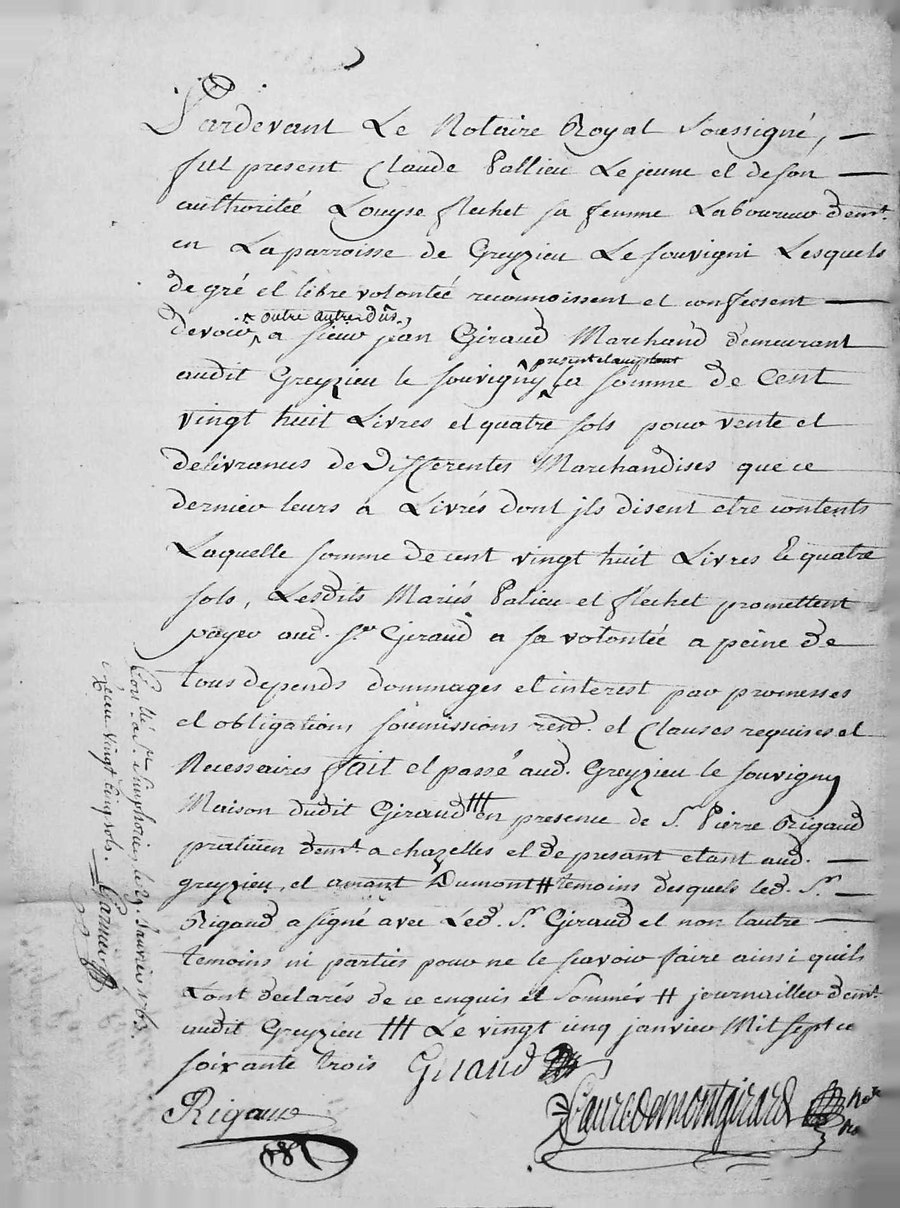 Pardevant Le Notaire Royal Soussigné, —
fut present Claude Pallieu Le jeune et de son —
authoritéé Louyse flechet sa femme Laboureur demt.
en La parroisse de Greyzieu Le souvigni Lesquels
de gré et libre volontéé reconnoissent et confessent —
outre autre dus.
devoir a sieur jean Giraud Marchand demeurant
present et acceptant
audit Greyzieu le souvigny La somme de Cent
vingt huit Livres et quatre sols pour vente et
delivrances de Differentes Marchandises que ce
dernier leurs a Livrés dont jls disent etre contents
Laquelle somme de cent vingt huit Livres & quatre
sols, Lesdits Mariés Palieu et flechet promettent
payer aud. sr. Giraud a sa volontéé a peine de
tous depends dommages et interest par promesses
et obligations soumissions rend. et Clauses requises et
Necessaires fait et passé aud. Greyzieu le souvigny
Maison dudit Giraud ҂ en presence de S. Pierre Rigaud
praticien demt. a chazelles et de presant etant aud. —
greyzieu, et amant Dumont # temoins desquels led. Sr. —
Rigaud a signé avec Led. Sr. Giraud et non lautre —
temoins ni parties pour ne le scavoir faire ainsi quils
Lont declarés de ce enquis et Sommés # journaillier demt.
audit Greyzieu ҂ Le vingt cinq janvier Mil sept ce
soixante trois Giraud
Rigaud
Faure demontgirard
Con.lé a St. Simphorien le 29. Janvier 1763.
reçeu vingt Cinq sols. Garnier